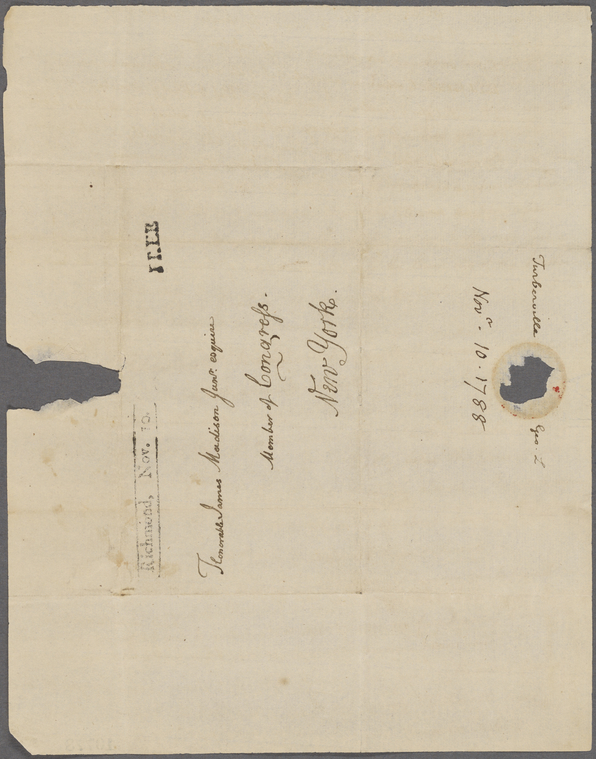 FREE
Richmond, Nov. 12.
Honorable James Madison Junr. esquire
Member of Congress.
New York.
Turberville Geo. L
Novr. 10. 1788